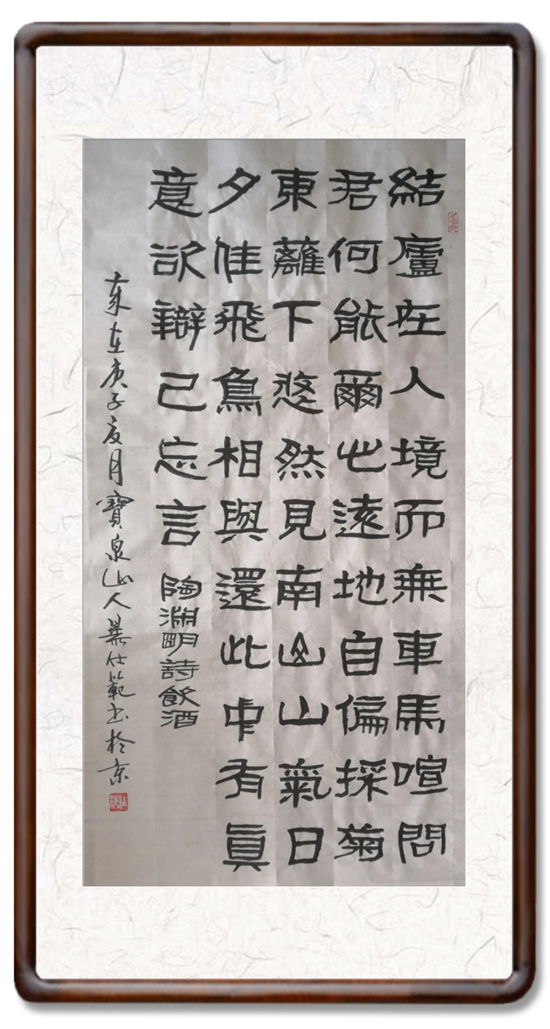 結廬在人境而無車馬喧問
君何能爾心遠地自偏採菊
東蘺下悠然見南山山氣日
夕佳飛鳥相與還此中有眞
意欲辯己忘言 陶淵明詩飲酒
歲在庚子夏月寶泉山人仕範書於京